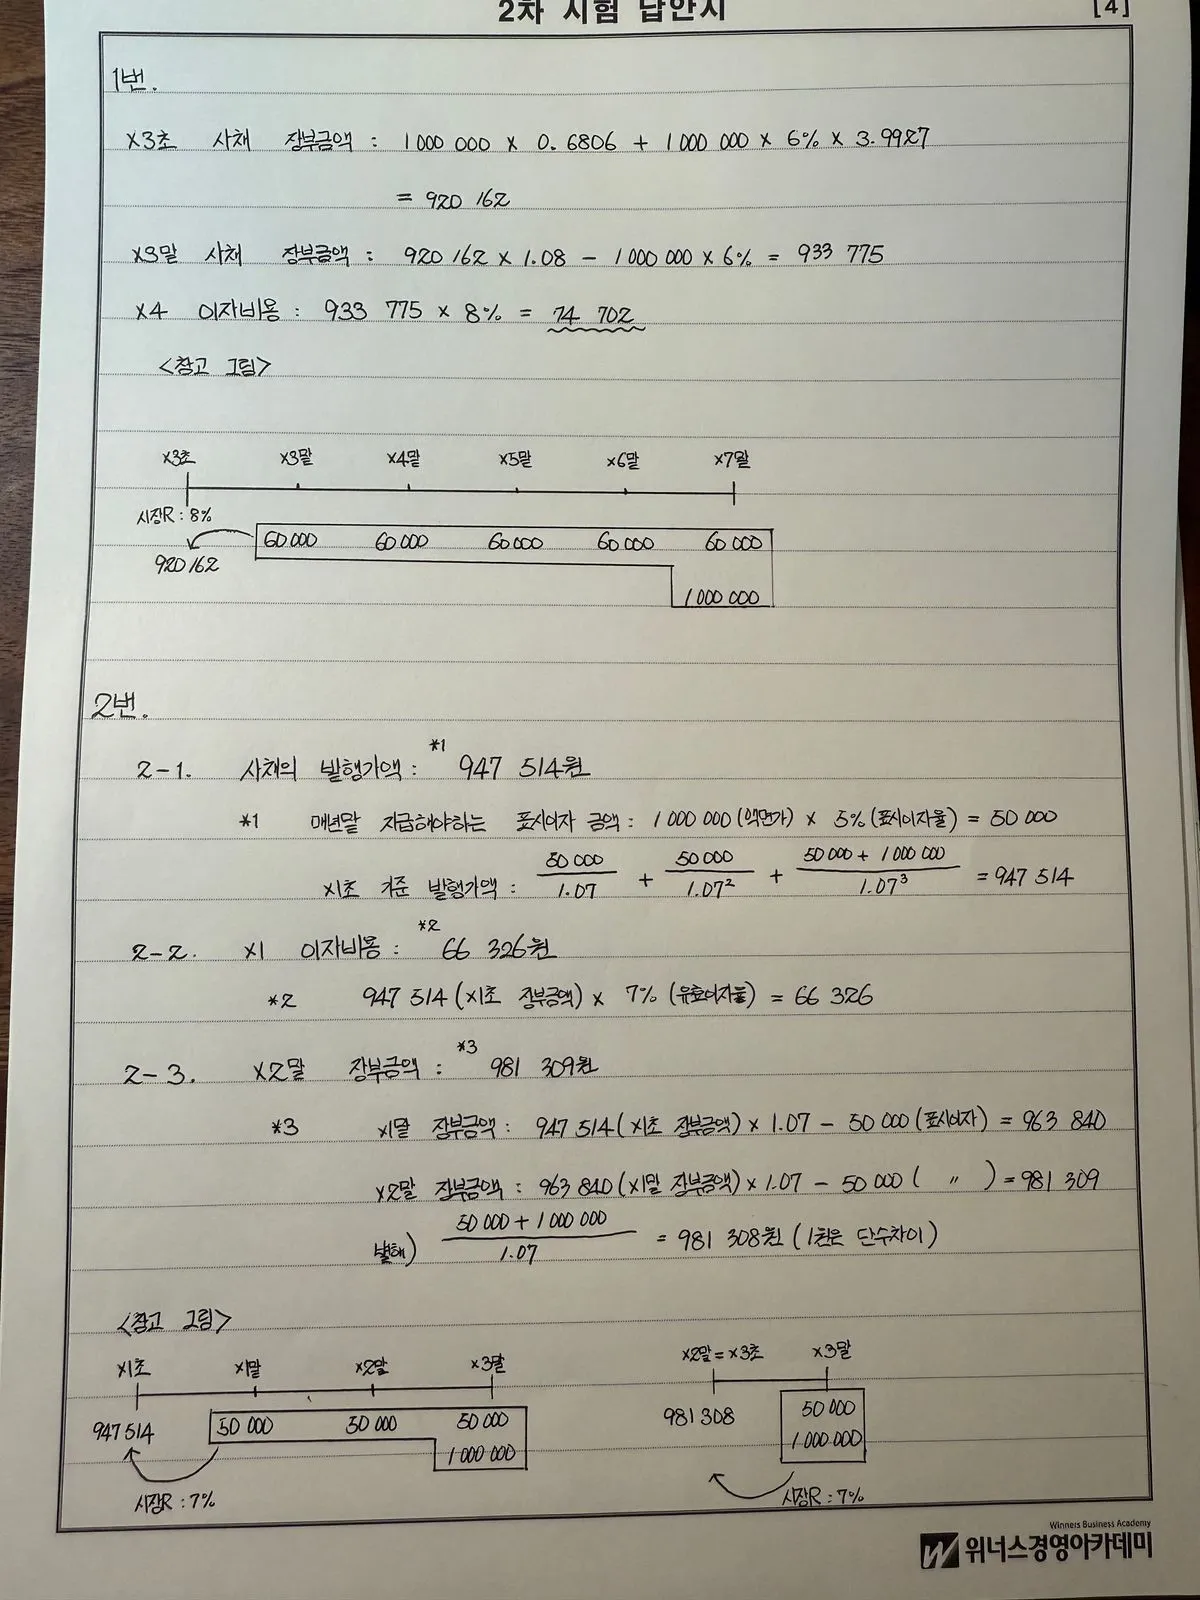 2차 시험 답안지
[4]
1번.
x3초 사채 장부금액 : 1 000 000 x 0.6806 + 1 000 000 x 6% x 3.9927
= 920 162
x3말 사채 장부금액 : 920 162 x 1.08 - 1 000 000 x 6% = 933 775
x4 이자비용 : 933 775 x 8% = 74 702
<참고 그림>
x3초 x3말 x4말 x5말 x6말 x7말
시장R : 8%
60 000 60 000 60 000 60 000 60 000
920 162
1 000 000
2번.
2-1. 사채의 발행가액 : *1 947 514원
*1 매년말 지급해야하는 표시이자 금액 : 1 000 000 (액면가) x 5% (표시이자율) = 50 000
x1초 기준 발행가액 : 50 000 / 1.07 + 50 000 / 1.07² + 50 000 + 1 000 000 / 1.07³ = 947 514
2-2. x1 이자비용 : *2 66 326원
*2 947 514 (x1초 장부금액) x 7% (유효이자율) = 66 326
2-3. x2말 장부금액 : *3 981 309원
*3 x1말 장부금액 : 947 514 (x1초 장부금액) x 1.07 - 50 000 (표시이자) = 963 840
x2말 장부금액 : 963 840 (x1말 장부금액) x 1.07 - 50 000 ( 〃 ) = 981 309
별해) 50 000 + 1 000 000 / 1.07 = 981 308원 (1원은 단수차이)
<참고 그림>
x1초 x1말 x2말 x3말
947 514 50 000 50 000 50 000
1 000 000
시장R : 7%
x2말 = x3초 x3말
981 308 50 000
1 000 000
시장R : 7%
Winners Business Academy
W 위너스경영아카데미